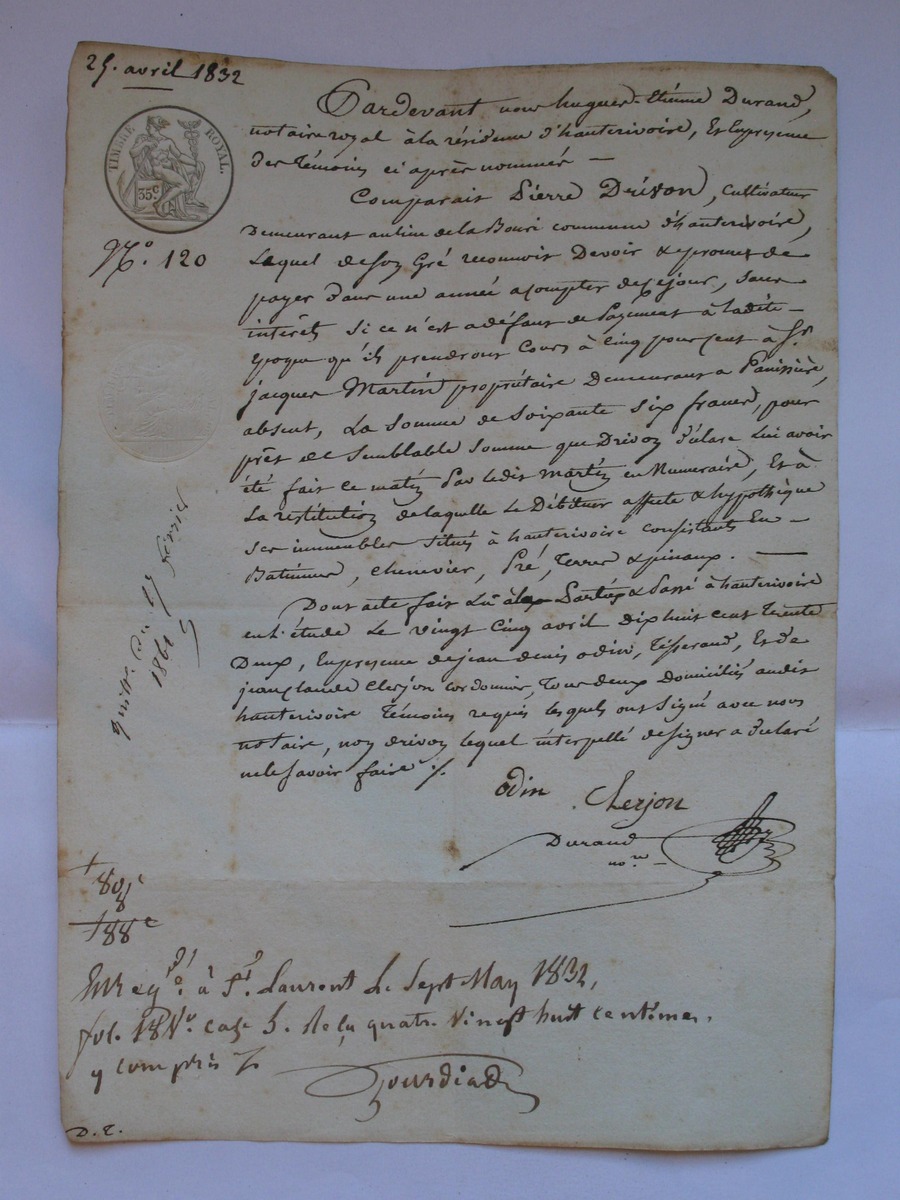 25. avril 1832
TIMBRE ROYAL.
35 c
N.o 120
Pardevant nous hugues-Etienne Durand,
notaire royal à la résidence d'hauterivoire, Et En présence
des témoins ci après nommés —
Comparait Pierre Drivon, cultivateur
Demeurant au lieu de la Bourie commune d'hauterivoire,
Lequel de son Gré reconnoit Devoir & promet de
payer dans une année a compter de ce jour, sans
intérêts si ce n'est a défaut de Payement à ladite —
Epoque qu'ils prendront Cours à Cinq pour Cent à Sr.
jacques Martin propriétaire Demeurant a Panissière,
absent, La somme de Soixante six francs, pour
prêt de Semblable Somme que Drivon déclare Lui avoir
été fait ce matin Par ledit martin en Numéraire, Et à
La restitution de laquelle Le Débiteur affecte & hypothèque
ses immeubles Situés à hauterivoire consistants En —
Batiments, chenevier, Pré, Terres & pinaux. —
Dont acte fait Lu aux Parties & Passé à hauterivoire
en l'étude Le vingt Cinq avril dix huit cent Trente
Deux, En présence de jean denis odin, Tisserand, Et de
jean claude Clerjon cordonnier, Tous deux Domiciliés audit
hauterivoire Témoins requis lesquels ont Signé avec nous
notaire, non drivon lequel interpellé de signer a déclaré
ne le savoir faire ./.
Odin . Clerjon
Durand
no.re —
février
1861
80 c
8
88 c
Enregd. à St. Laurent Le Sept May 1832,
fol. 18 Vo. case 5. Reçu quatre vingt huit centimes.
y compris
Gourdiat
D. T.